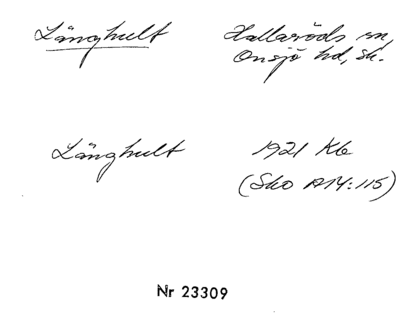 Långhult Hallaröds sn,
Onsjö hd, Sk.
Långhult 1921 Kb
(Sko AIV:115)
Nr 23309